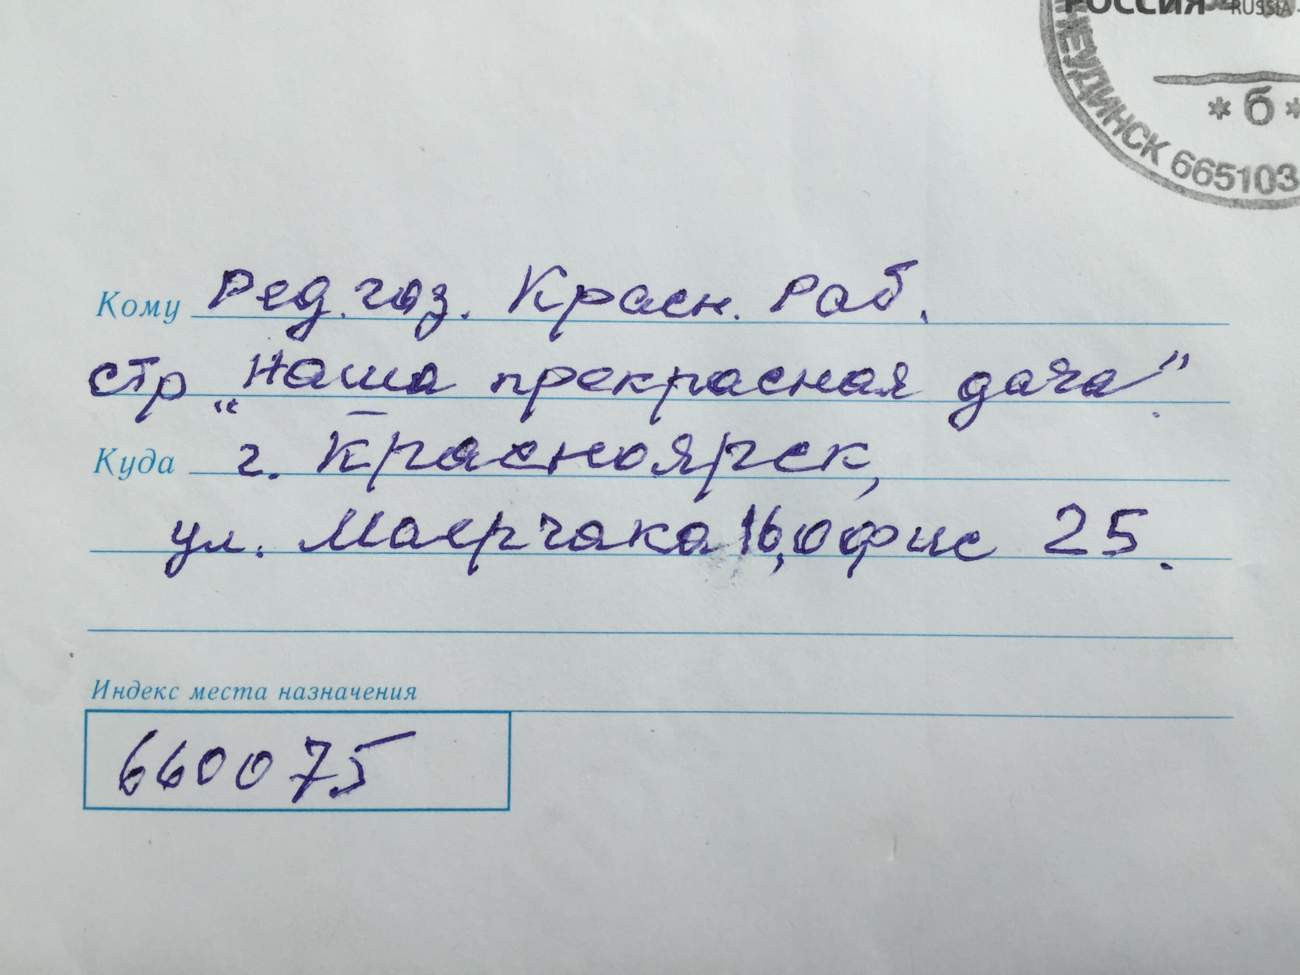 РОССИЯ RUSSIA
НЕУДИНСК 665103
* б *
Кому Ред. газ. Красн. Раб.
стр „Наша прекрасная дача".
Куда г. Красноярск,
ул. Маерчака 16, офис 25.
Индекс места назначения
660075